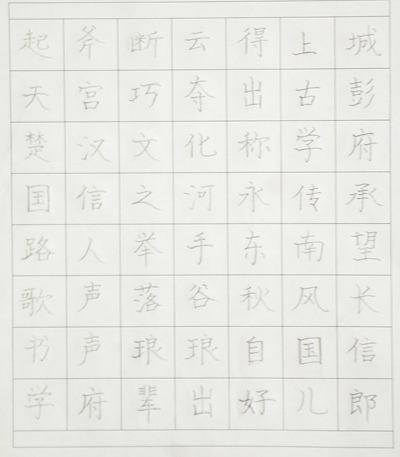 起斧断云得上城
天宫巧夺出古彭
楚汉文化称学府
国信之河永传承
路人举手东南望
歌声落谷秋风长
书声琅琅自国信
学府辈出好儿郎